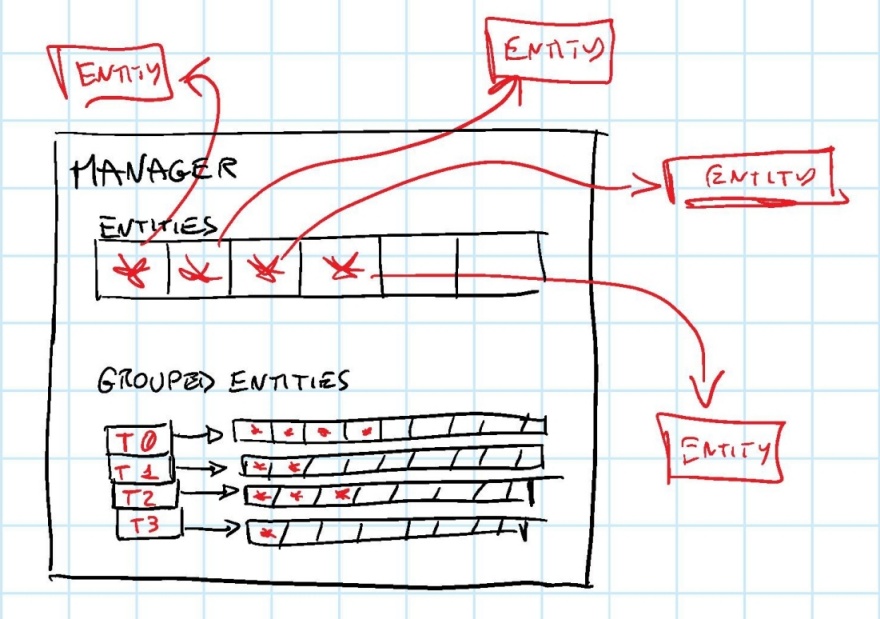 ENTITY
ENTITY
MANAGER
ENTITY
ENTITIES
* * * *
GROUPED ENTITIES
T0 * * * *
T1 * *
ENTITY
T2 * * *
T3 *